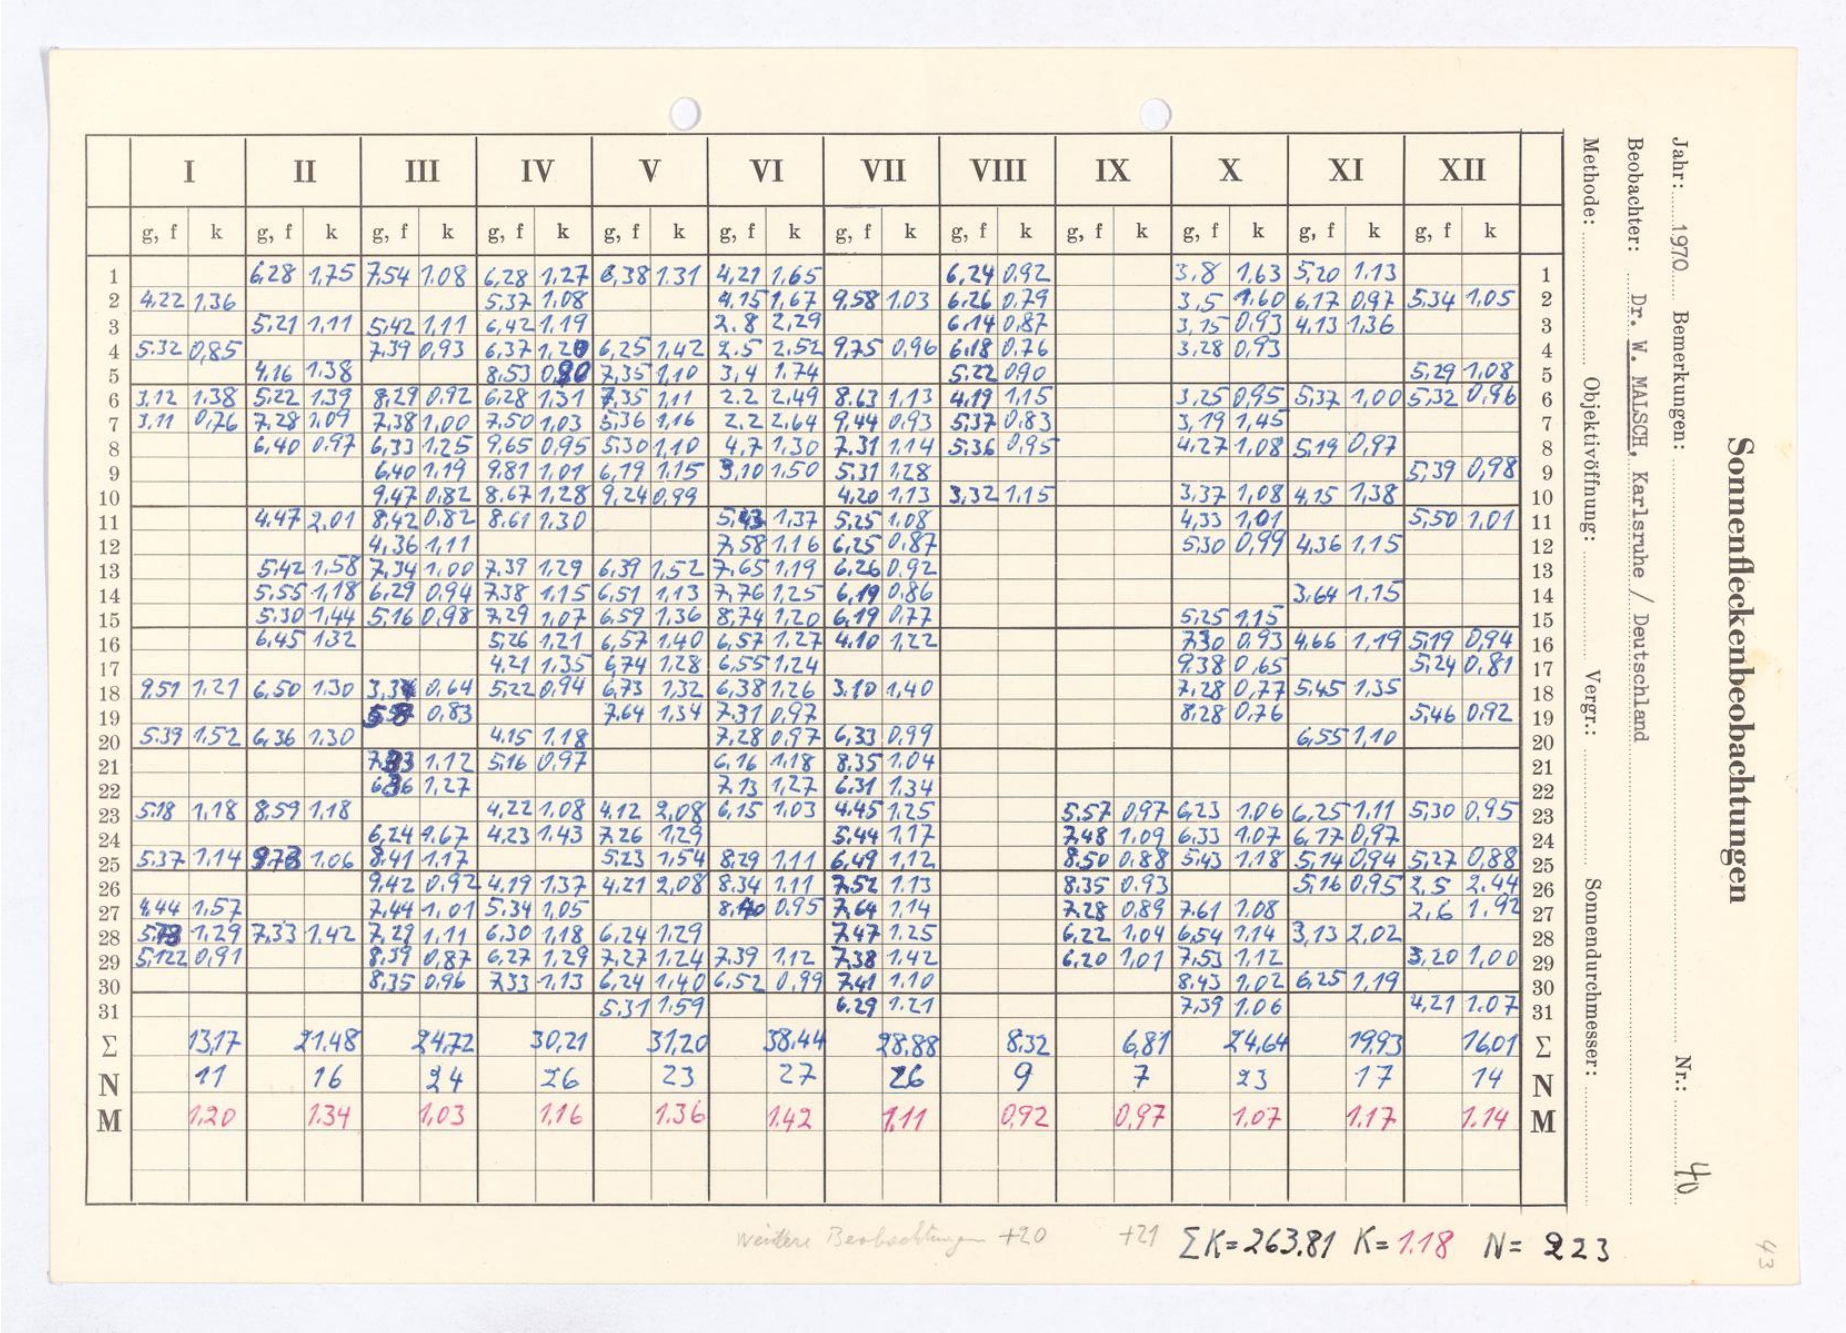 Sonnenfleckenbeobachtungen
Jahr: 1970 Bemerkungen: Nr.: 40
Beobachter: Dr. W. MALSCH, Karlsruhe / Deutschland
Methode: Objektivöffnung: Vergr.: Sonnendurchmesser:
I II III IV V VI VII VIII IX X XI XII
g, f k g, f k g, f k g, f k g, f k g, f k g, f k g, f k g, f k g, f k g, f k g, f k
1 6,28 1,75 7,54 1.08 6,28 1,27 6,38 1.31 4,21 1,65 6,24 0,92 3,8 1,63 5,20 1.13 1
2 4,22 1,36 5,37 1,08 4,15 1,67 9,58 1.03 6,26 0,79 3,5 1.60 6,17 0,97 5,34 1,05 2
3 5,21 1,11 5,42 1,11 6,42 1,19 2.8 2,29 6,14 0,87 3,15 0,93 4,13 1,36 3
4 5.32 0,85 7,39 0,93 6,37 1,20 6,25 1,42 2.5 2.52 9,75 0,96 6,18 0,76 3,28 0,93 4
5 4,16 1.38 8,53 0,90 7,35 1,10 3,4 1.74 5,22 0,90 5,29 1,08 5
6 3,12 1,38 5,22 1,39 8,29 0,92 6,28 1,31 7,35 1,11 2.2 2,49 8.63 1,13 4,19 1,15 3,25 0,95 5,37 1,00 5,32 0,96 6
7 3,11 0,76 7,28 1,09 7,38 1,00 7,50 1,03 5,36 1,16 2.2 2,64 9,44 0,93 5,37 0,83 3,19 1,45 7
8 6,40 0,97 6,33 1,25 9,65 0,95 5,30 1,10 4,7 1,30 7,31 1,14 5,36 0,95 4,27 1,08 5,19 0,97 8
9 6,40 1,19 9,81 1,01 6,19 1,15 3,10 1,50 5,31 1,28 5,39 0,98 9
10 9,47 0,82 8,67 1,28 9,24 0,99 4,20 1,13 3,32 1,15 3,37 1,08 4,15 1,38 10
11 4.47 2,01 8,42 0,82 8,61 1.30 5,43 1,37 5,25 1.08 4,33 1,01 5,50 1,01 11
12 4,36 1,11 7,58 1,16 6,25 0,87 5,30 0,99 4,36 1,15 12
13 5,42 1,58 7,34 1,00 7,39 1,29 6,39 1,52 7,65 1,19 6,26 0,92 13
14 5,55 1,18 6,29 0,94 7,38 1,15 6,51 1,13 7,76 1,25 6,19 0,86 3,64 1,15 14
15 5.30 1,44 5.16 0,98 7,29 1,07 6,59 1,36 8,74 1,20 6,19 0,77 5,25 1,15 15
16 6,45 1.32 5,26 1,21 6,57 1,40 6,57 1,27 4,10 1,22 7,30 0,93 4,66 1,19 5,19 0,94 16
17 4.21 1,35 6,74 1,28 6,55 1,24 9,38 0,65 5,24 0,81 17
18 9.51 1,21 6,50 1.30 0,64 5,22 0,94 6,73 1,32 6,38 1,26 3.10 1,40 7,28 0,77 5,45 1,35 18
19 0,83 7,64 1,34 7.31 0,97 8,28 0,76 5,46 0,92 19
20 5.39 1,52 6,36 1.30 4.15 1.18 7,28 0,97 6,33 0,99 6,55 1,10 20
21 1,12 5,16 0,97 6,16 1,18 8.35 1.04 21
22 1,27 7,13 1,27 6,31 1,34 22
23 5.18 1,18 8,59 1,18 4,22 1,08 4.12 2,08 6,15 1.03 4.45 1.25 5.57 0,97 6,23 1.06 6,25 1,11 5,30 0,95 23
24 6,24 1.67 4.23 1.43 7,26 1,29 5,44 1,17 7,48 1,09 6,33 1,07 6,17 0,97 24
25 5.37 1,14 1.06 8,41 1,17 5.23 1,54 8,29 1,11 6,49 1,12 8,50 0,88 5,43 1,18 5,14 0,94 5,27 0,88 25
26 9,42 0,92 4.19 1,37 4.21 2,08 8,34 1,11 7,52 1.13 8,35 0,93 5,16 0,95 2,5 2.44 26
27 4.44 1,57 7,44 1,01 5.34 1,05 8,40 0.95 7,64 1,14 7,28 0,89 7,61 1.08 2,6 1.92 27
28 1,29 7,33 1,42 7,29 1,11 6,30 1,18 6,24 1,29 7,47 1.25 6,22 1,04 6,54 1,14 3,13 2,02 28
29 5,122 0,91 8,39 0,87 6,27 1,29 7,27 1,24 7,39 1,12 7,38 1,42 6,20 1,01 7,53 1,12 3,20 1,00 29
30 8,35 0,96 7,33 1,13 6,24 1,40 6,52 0,99 7,41 1.10 8,43 1,02 6,25 1,19 30
31 5.31 1.59 6.29 1.21 7,39 1.06 4,21 1.07 31
Σ 13,17 21,48 24,72 30,21 31,20 38,44 28,88 8,32 6,81 24,64 19,93 16,01 Σ
N 11 16 24 26 23 27 26 9 7 23 17 14 N
M 1,20 1.34 1,03 1,16 1.36 1.42 1,11 0,92 0,97 1.07 1.17 1.14 M
weitere Beobachtungen +20 +21 ΣK=263.81 K=1.18 N= 223
43